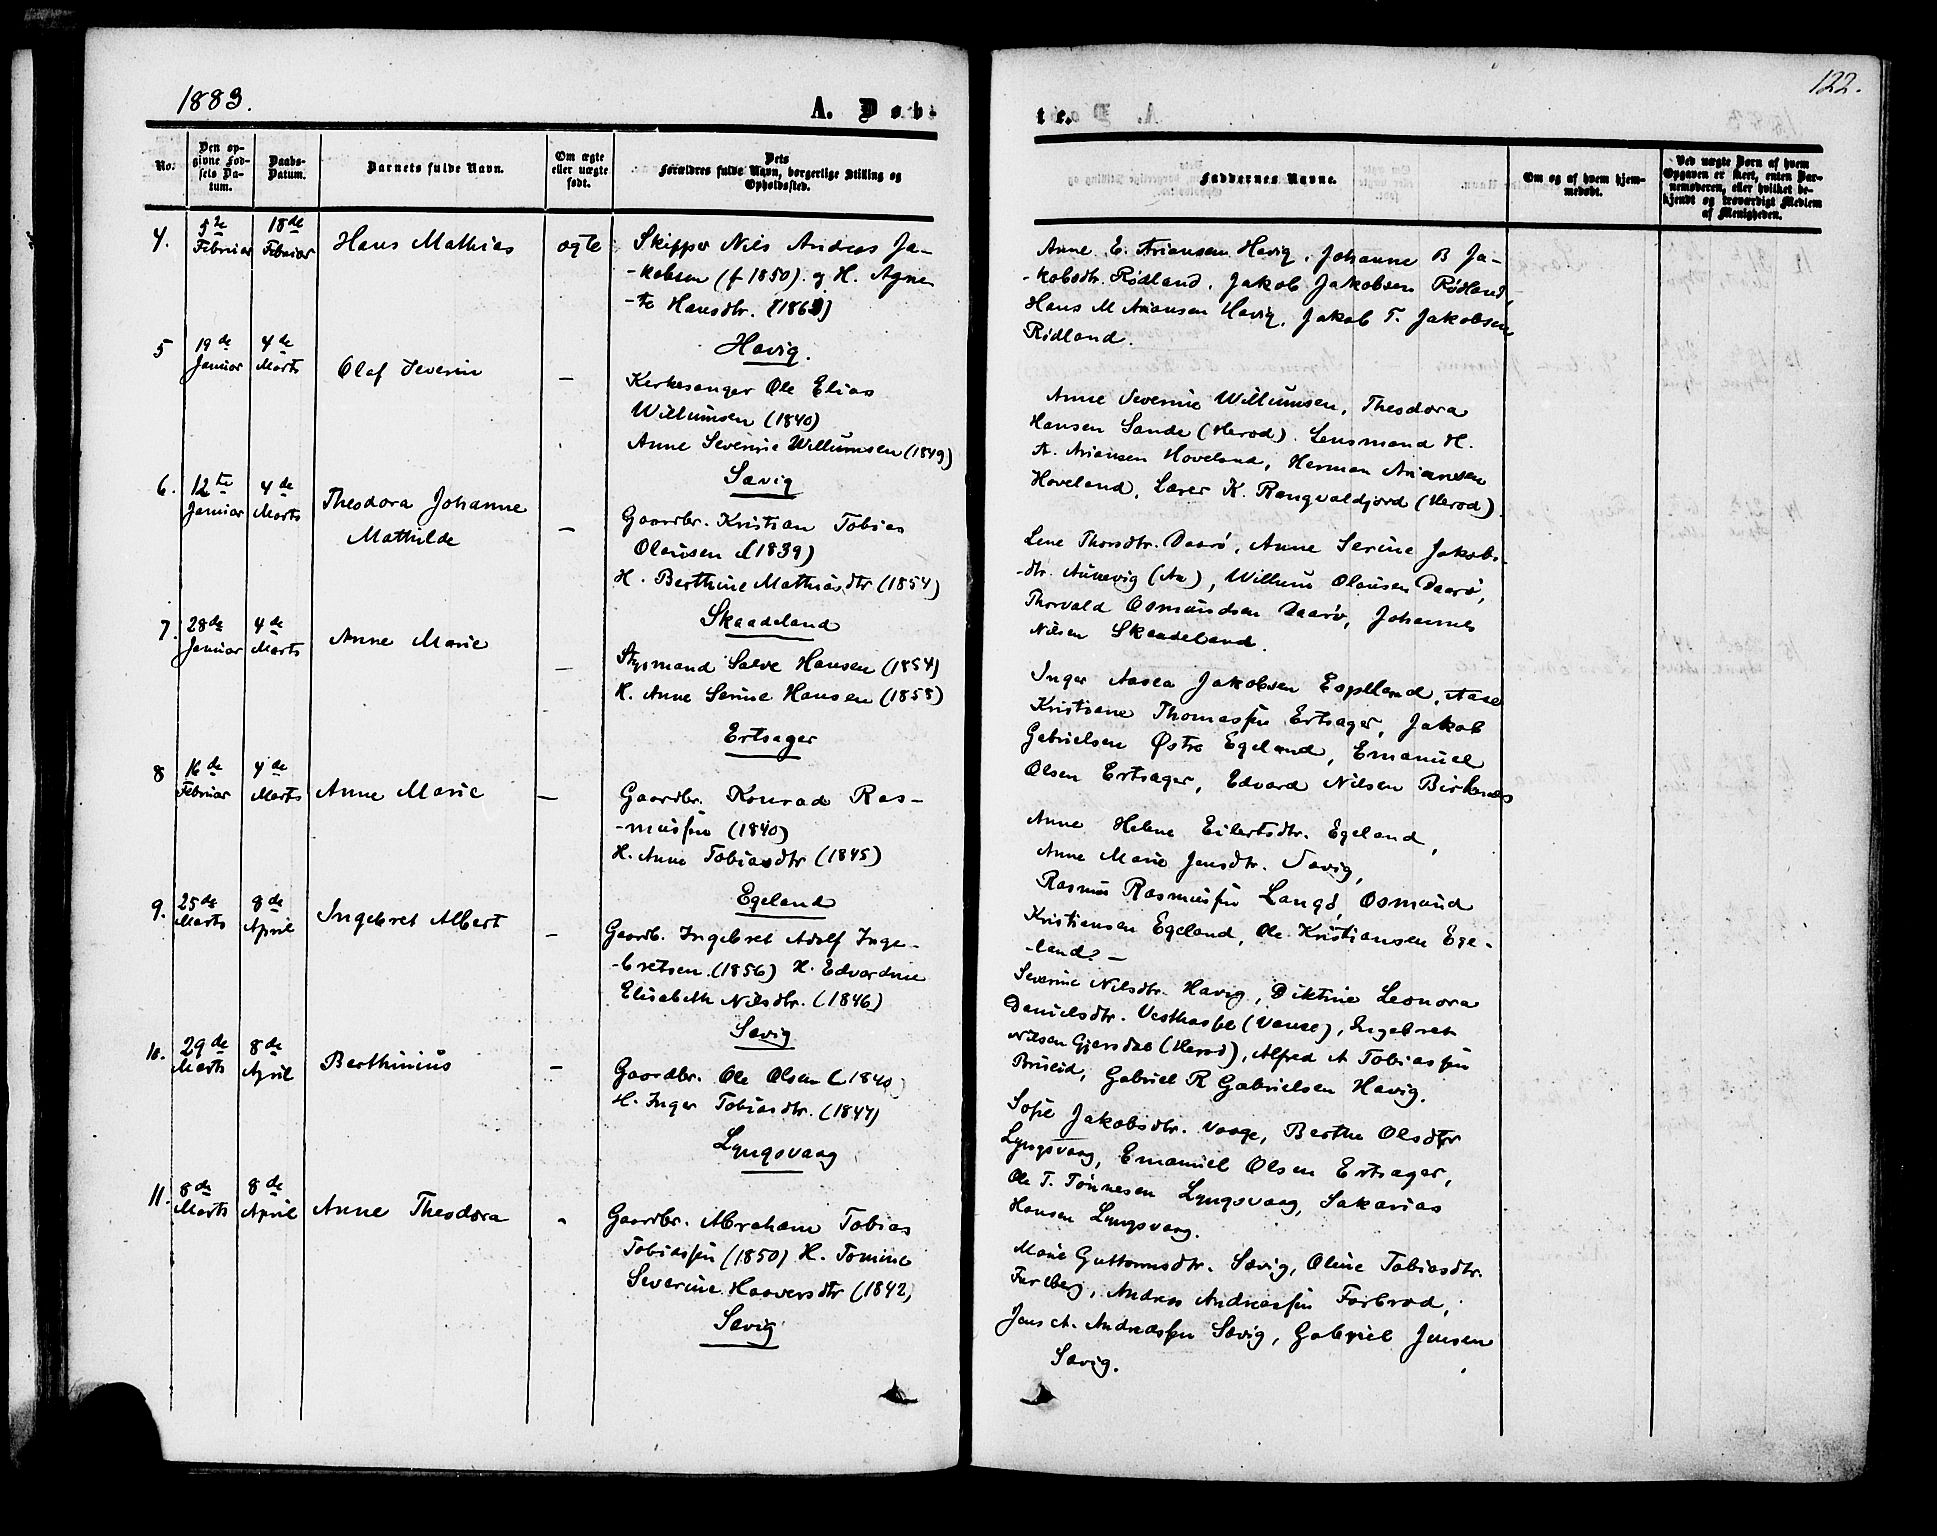 1883.
A. Døb-
No.
Den op-
givne Fød-
sels Da-
tum.
Daabs-
Datum.
Barnets fulde Navn.
Om ægte
eller uægte
født.
Dets
Forældres fulde Navn, borgerlige Stilling og
Opholdssted.
4.
5te
Februar
18de
Februar
Hans Mathias
ægte
Skipper Nils Andreas Ja-
-kobsen (f 1850). og H. Agne-
-te Hansdtr.
Havig.
5
19de
Januar
4de
Marts
Olaf Severin
—
Kirkesanger Ole Elias
Willumsen (1840)
Anne Severine Willumsen (1849)
Sævig
6.
12te
Januar
4de
Marts
Theodora Johanne
Mathilde
—
Gaardbr. Kristian Tobias
Olausen (1839)
H. Berthine Mathiasdtr (1854)
Skaadeland
7.
28de
Januar
4de
Marts
Anne Marie
—
Stysmand Salve Hansen (1854)
H. Anne Serine Hansen (1858)
Ertsager
8
16de
Februar
4de
Marts
Anne Marie
—
Gaardbr. Konrad Ras-
-mussen (1840)
H. Anne Tobiasdtr (1845)
Egeland
9.
25de
Marts
8de
April
Ingebret Albert
—
Gaardb. Ingebret Adolf Inge-
-bretsen. (1856) H. Edvardine
Elisabeth Nilsdtr. (1846)
Sævig
10.
29de
Marts
8de
April
Berthinius
—
Gaardbr. Ole Olsen (1840)
H. Inger Tobiasdtr. (1847)
Lyngsvaag
11.
8de
Marts
8de
April
Anne Theodora
-
Gaardbr. Abraham Tobias
Tobiassen (1850) H. Tomine
Severine Haaversdtr (1842)
Sævig
122.
te.
Faddernes Navne.
Om og af hvem hjem-
medøbt.
Ved uægte Born af hvem
Opgaven er skeet, enten Bar-
nemoderen, eller hvilket be-
kjendt og troværdigt Medlem
af Menigheden.
Anne E. Ariansen Havig, Johanne B Ja-
-kobsdtr. Rødland, Jakob Jakobsen Rødland,
Hans M Ariansen Havig, Jakob T. Jakobsen
Rødland.
Anne Severine Willumsen, Theodora
Hansen Sande (Herod). Lensmand H.
A. Ariansen Hoveland, Herman Ariansen
Hoveland, Lærer K. Rangvaldjord (Herod).
Lene Thorsdtr. Daarø, Anne Serine Jakobs-
-dtr. Aunevig (Aa), Willum Olausen Daarø,
Thorvald Osmundsen Daarø, Johannes
Nilsen Skaadeland.
Inger Aasea Jakobsen Espeland, Aase
Kristiane Thomassen Ertsager, Jakob
Gabrielsen Østre Egeland, Emanuel
Olsen Ertsager, Edvard Nilsen Birkenes
Anne Helene Eilertsdtr. Egeland,
Anne Marie Jensdtr. Sævig,
Rasmus Rasmussen Langø, Osmund
Kristiansen Egeland, Ole Kristiansen Ege-
-land. —
Severine Nilsdtr. Havig, Diktine Leonora
Danielsdtr. Vesthassel (Vanse), Ingebret
Nilsen Gjersdal (Herod), Alfred A Tobiassen
Gabriel R Gabrielsen Havig.
Sofie Jakobsdtr. Vaage, Berthe Olsdtr
Lyngsvaag, Emanuel Olsen Ertsager,
Ole T. Tønnesen Lyngsvaag, Sakarias
Hansen Lyngsvaag.
Marie Guttormsdtr. Sævig, Oline Tobiasdtr.
Andreas Andreassen Farbrod,
Jens A. Andreassen Sævig, Gabriel Jensen
Sævig.